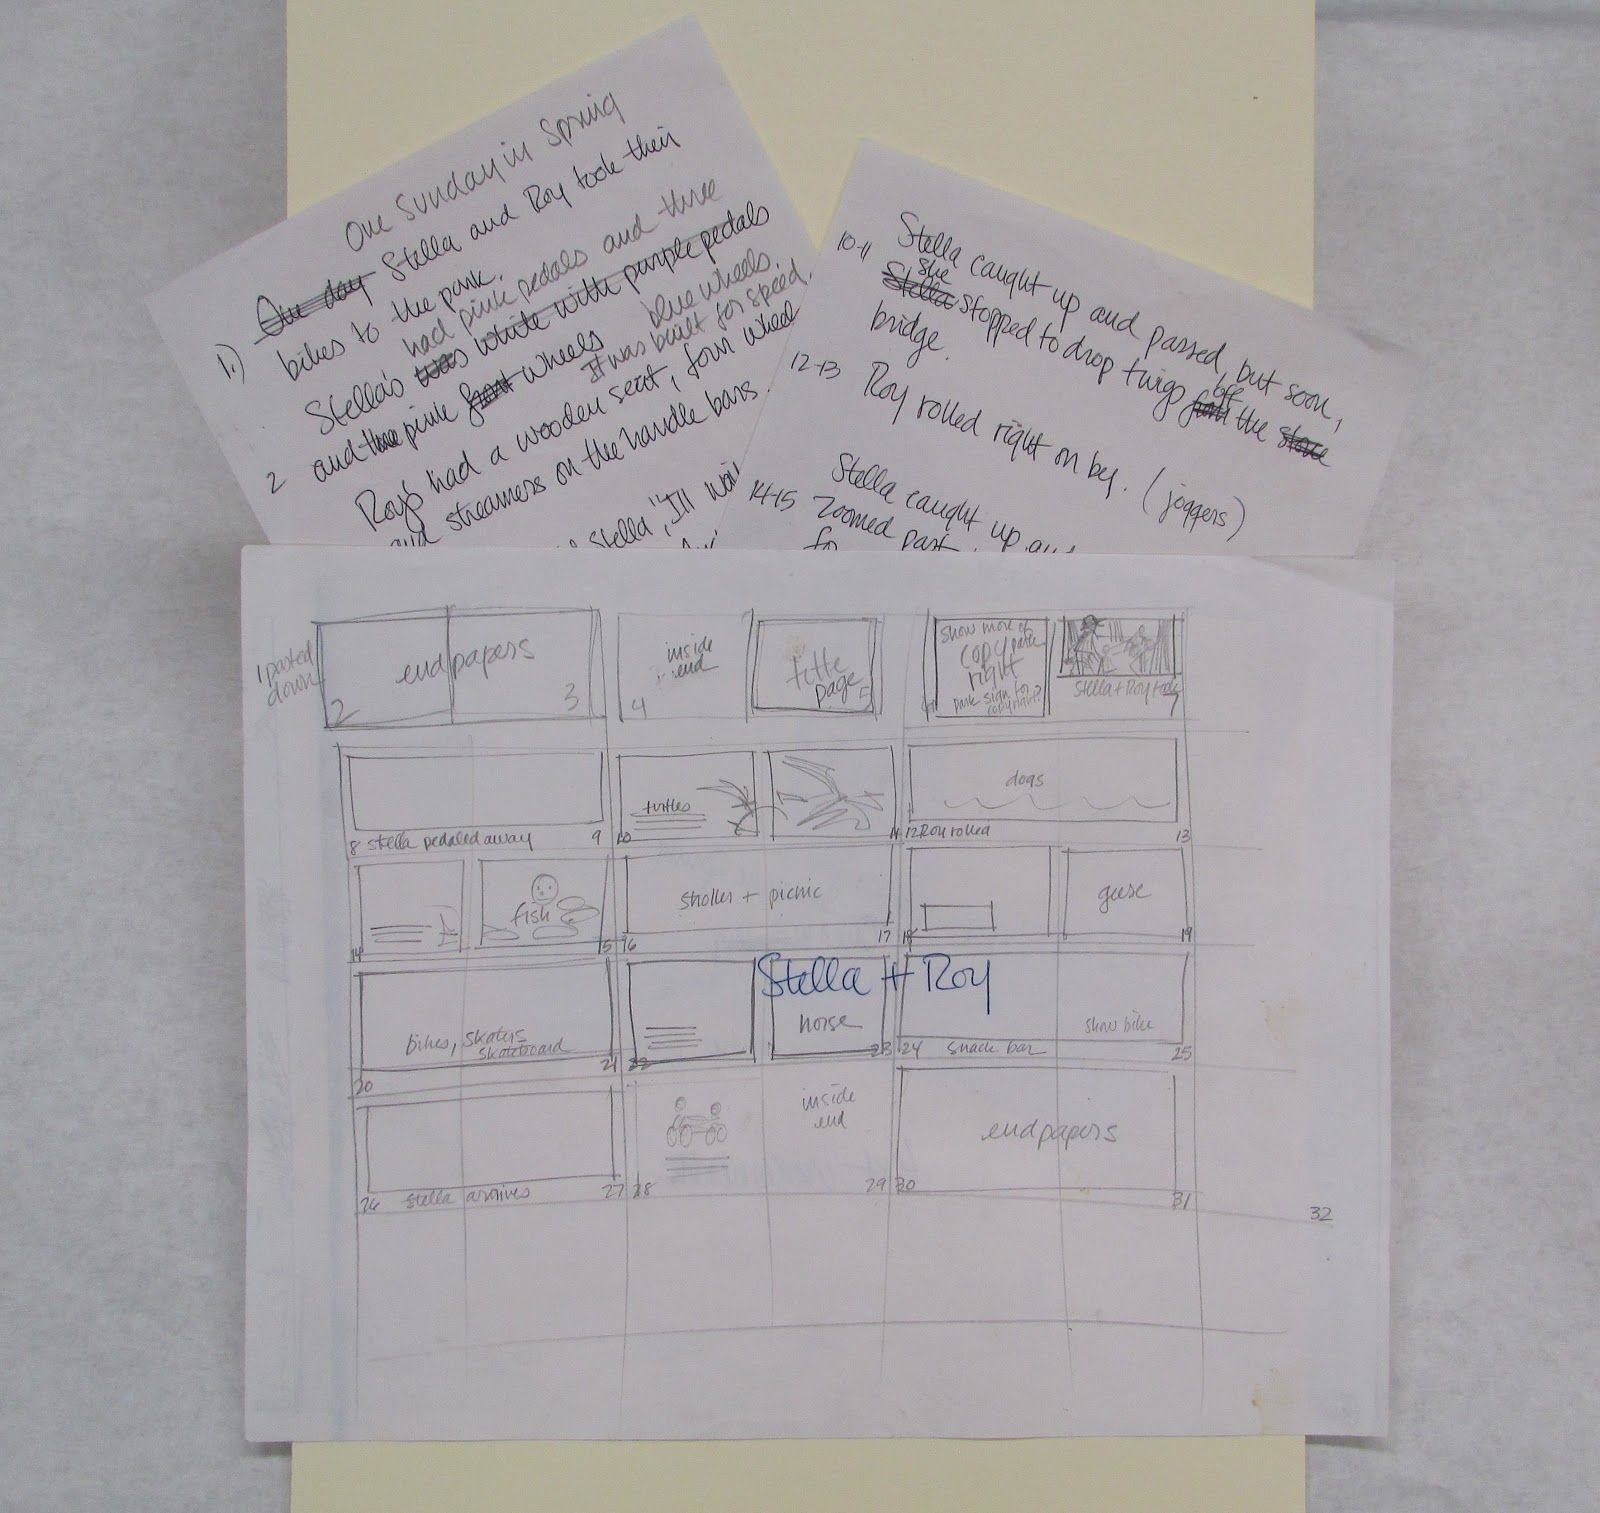 One Sunday in Spring
1.) One day Stella and Roy took their
bikes to the park.
had pink pedals and three
Stella's was white with purple pedals
blue wheels.
2 and the pink front wheels
It was built for speed.
Roy's had a wooden seat, four wheel
and streamers on the handle bars.
Stella, "I'll
10-11 Stella caught up and passed, but soon,
she
Stella stopped to drop twigs from the stone
off
bridge.
12-13 Roy rolled right on by. (joggers)
14-15 Stella caught up and
zoomed past
for
1 pasted
down
endpapers
2
3
inside
end
4
title
page
5
show more of
park
copy
right
park sign for
copyright?
Stella + Roy took
7
8 Stella pedaled away 9
turtles
10
11
dogs
12 Roy rolled 13
14
fish
15
stroller + picnic
16
17
18
geese
19
bikes, skaters
skateboard
20
21
Stella + Roy
22
horse
23
show bike
24 snack bar 25
26 Stella arrives 27
28
inside
end
29
endpapers
30
31
32